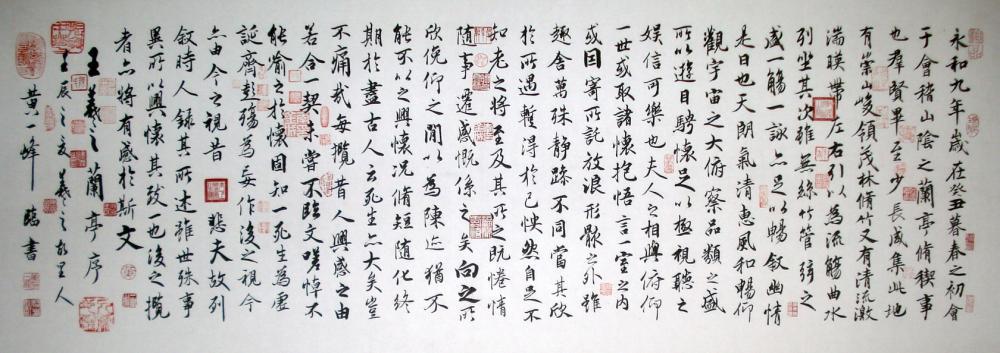 永和九年歲在癸丑暮春之初會
于會稽山陰之蘭亭脩稧事
也群賢畢至少長咸集此地
有崇山峻領茂林脩竹又有清流激
湍暎帶左右引以為流觴曲水
列坐其次雖無絲竹管弦之
盛一觴一詠亦足以暢敘幽情
是日也天朗氣清惠風和暢仰
觀宇宙之大俯察品類之盛
所以遊目騁懷足以極視聽之
娛信可樂也夫人之相與俯仰
一世或取諸懷抱悟言一室之內
或因寄所託放浪形骸之外雖
趣舍萬殊靜躁不同當其欣
於所遇暫得於己怏然自足不
知老之將至及其所之既惓情
隨事遷感慨係之矣向之所
欣俛仰之間以為陳迹猶不
能不以之興懷況脩短隨化終
期於盡古人云死生亦大矣豈
不痛哉每攬昔人興感之由
若合一契未嘗不臨文嗟悼不
能喻之於懷固知一死生為虛
誕齊彭殤為妄作後之視今
亦由今之視昔 悲夫故列
敘時人錄其所述雖世殊事
異所以興懷其致一也後之攬
者亦將有感於斯文
王羲之蘭亭序
壬辰之夏羲之故里人
黃一峰 臨書